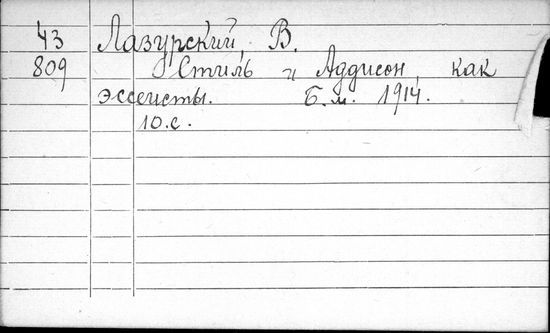 43 Лазурский, В.
809 Стиль и Аддисон, как
эссеисты. Б.м. 1914.
10.с.